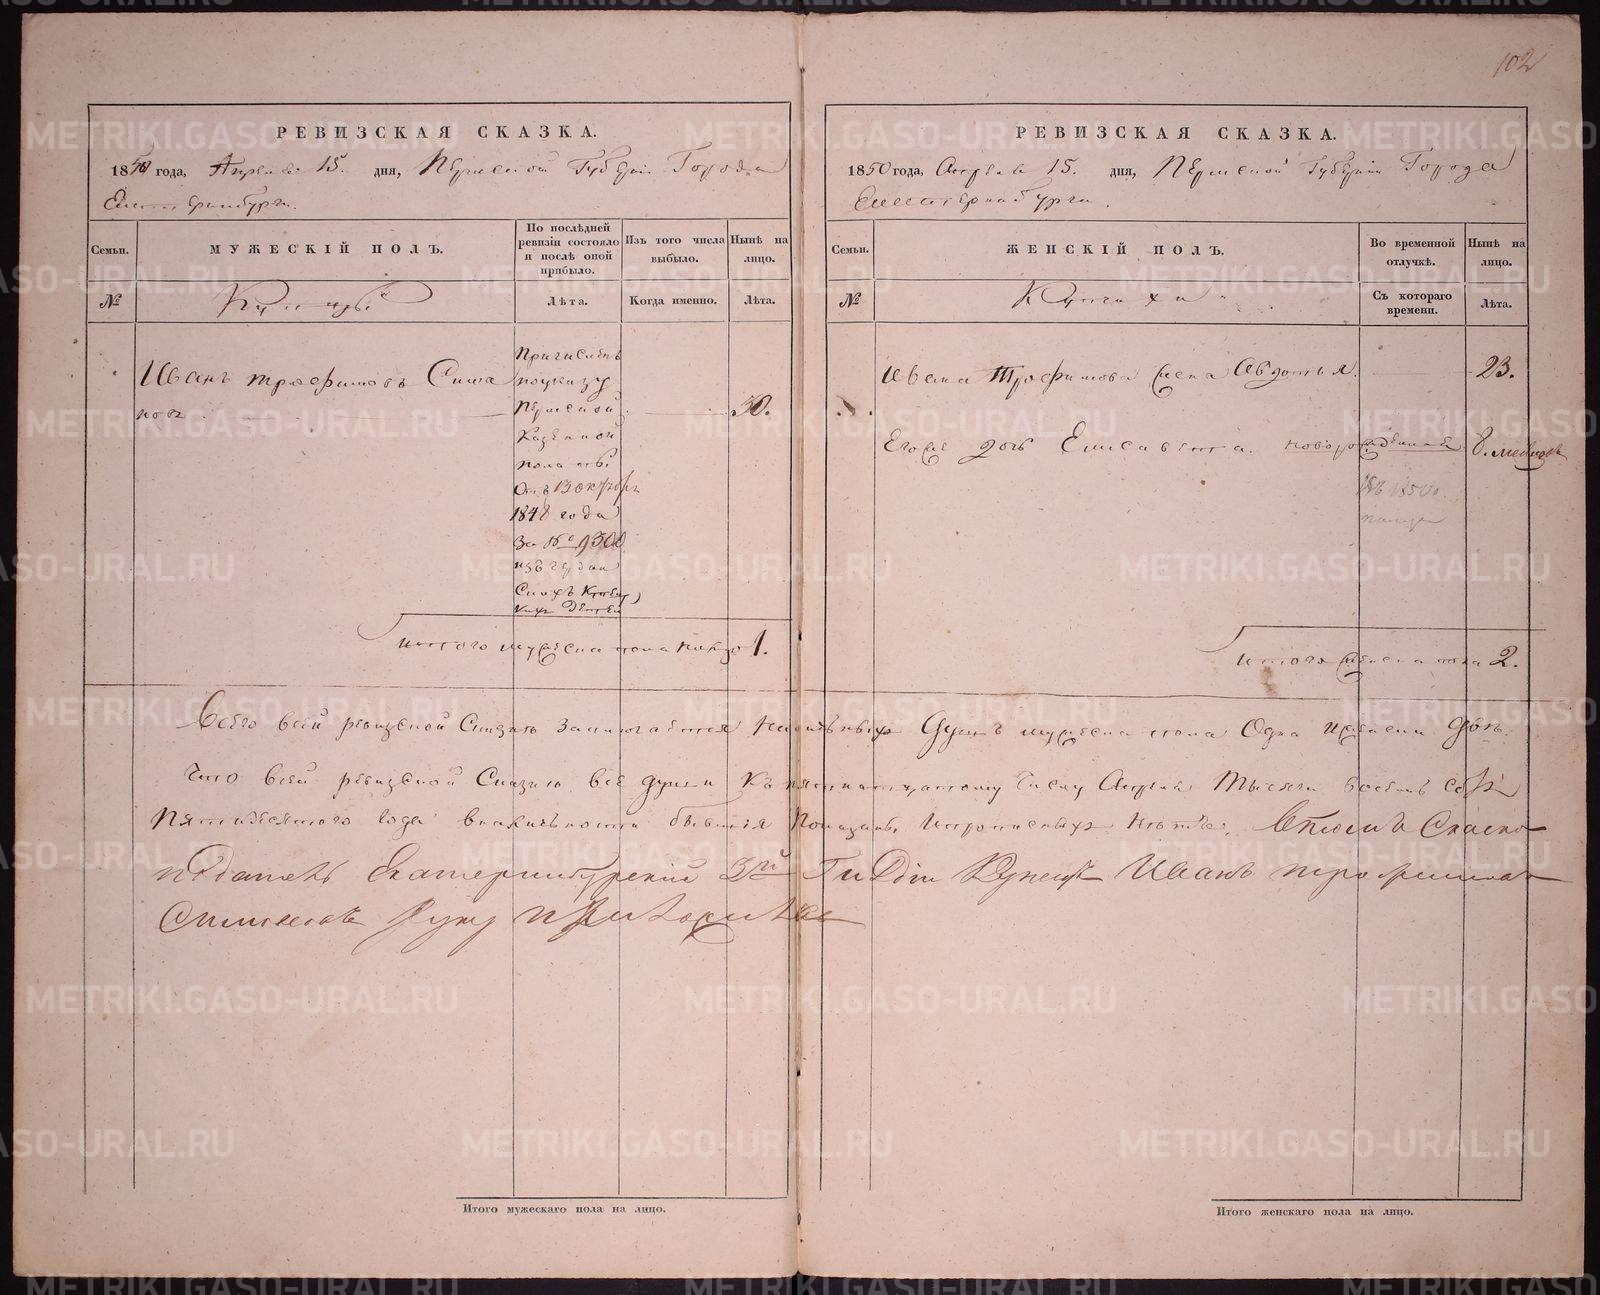 102
РЕВИЗСКАЯ СКАЗКА.
1850 года, Апреля 15. дня, Пермской Губерніи Города
Екатеринбурга.
Семьи.
МУЖЕСКІЙ ПОЛЪ.
По послѣдней ревизіи состояло и послѣ оной прибыло.
Изъ того числа выбыло.
Нынѣ на лицо.
№
Купцы
Лѣта.
Когда именно.
Лѣта.
Иванъ Трофимовъ Сима
новъ
30.
Причисленъ
поуказу
Пермской
Казенной
полаты
Отъ 13 октября
1848 года
За № 9300
изъ
Симъ
Дѣтей
итого мужеска пола налицо 1.
РЕВИЗСКАЯ СКАЗКА.
1850 года, Апреля 15. дня, Пермской Губерніи Города
Екатеринбурга.
Семьи.
ЖЕНСКІЙ ПОЛЪ.
Во временной отлучкѣ.
Нынѣ на лицо.
№
Купчихи
Съ котораго времени.
Лѣта.
Ивана Трофимова жена Авдотья.
23.
Егоже дочь Елисавета. новорожденная
8. месяцовъ
1850
итого женска пола 2.
Всего всей ревизской Сказкѣ заключается наличныхъ Душъ мужеска пола Одна женска Двѣ.
Что всей ревизской Сказкѣ все души Къ пятнатцатому числу Апреля Тысяча восемь сотъ
Пятидесятого Года вналичности бывшія Показаны ипрописныхъ нѣтъ. Втомъ Сказко
податель Екатеринбургскій 3й Гилдіи Купецъ Иванъ трофимовъ
Симановъ Руку приложилъ
Итого мужескаго пола на лицо.
Итого женскаго пола на лицо.
METRIKI.GASO-URAL.RU